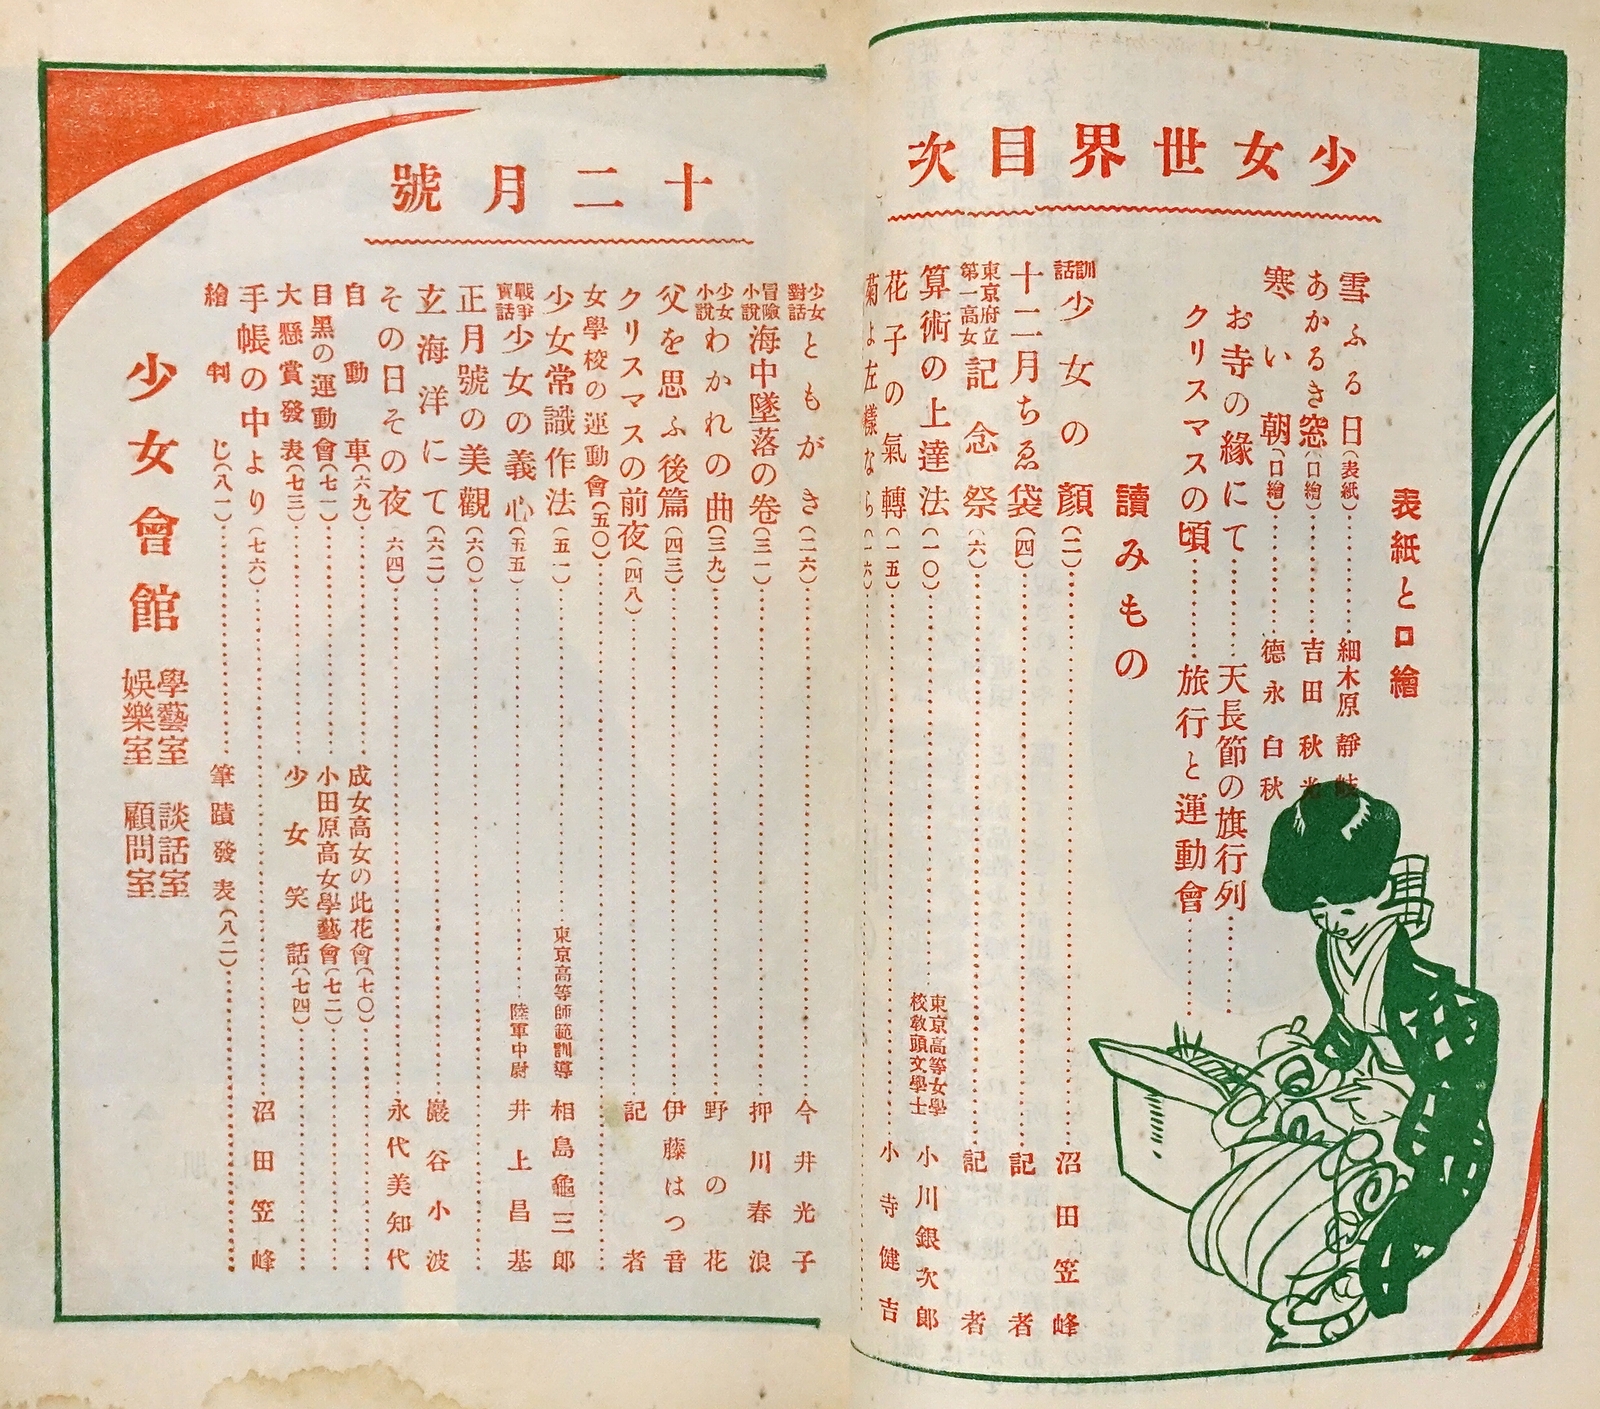 少女世界目次
表紙と口繪
雪ふる日(表紙)……細木原靜岐
あかるき窓(口繪)……吉田秋光
寒い朝(口繪)……德永白秋
お寺の緣にて……天長節の旗行列……
クリスマスの頃……旅行と運動會……
讀みもの
訓話 少女の顏(二)……沼田笠峰
十二月ちゑ袋(四)……記者
東京府立第一高女 記念祭(六)……記者
算術の上達法(一〇)……東京高等女學校敎頭文學士 小川銀次郎
花子の氣轉(一五)……小寺健吉
菊よ左樣なら(一六)……
十二月號
少女對話 ともがき(二六)……今井光子
冒險小說 海中墜落の卷(三一)……押川春浪
少女小說 わかれの曲(三九)……野の花
父を思ふ後篇(四三)……伊藤はつ音
クリスマスの前夜(四八)……記者
女學校の運動會(五〇)……
少女常識作法(五一)……東京高等師範訓導 相島龜三郎
戰爭實話 少女の義心(五五)……陸軍中尉 井上昌基
正月號の美觀(六〇)……
玄海洋にて(六二)……巖谷小波
その日その夜(六四)……永代美知代
自動車(六九)……成女高女の此花會(七〇)……
目黑の運動會(七一)……小田原高女學藝會(七二)……
大懸賞發表(七三)……少女笑話(七四)……
手帳の中より(七六)……沼田笠峰
繪判じ(八一)……筆蹟發表(八二)……
少女會館 學藝室 談話室 娛樂室 顧問室